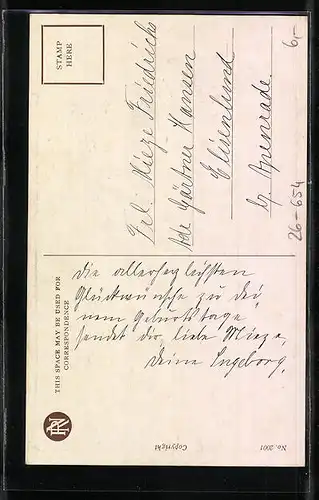 STAMP
HERE
6,-
Frl. Mieze Friedrich
Adr. Gärtner Hansen
Elisenlund
b. Apenrade
26-654
THIS SPACE MAY BE USED FOR
CORRESPONDENCE
die allerherzlichsten
Glückwünsche zu dei-
nem Geburtstage
sendet dir, liebe Mieze,
deine Ingeborg.
Copyright
No. 2001